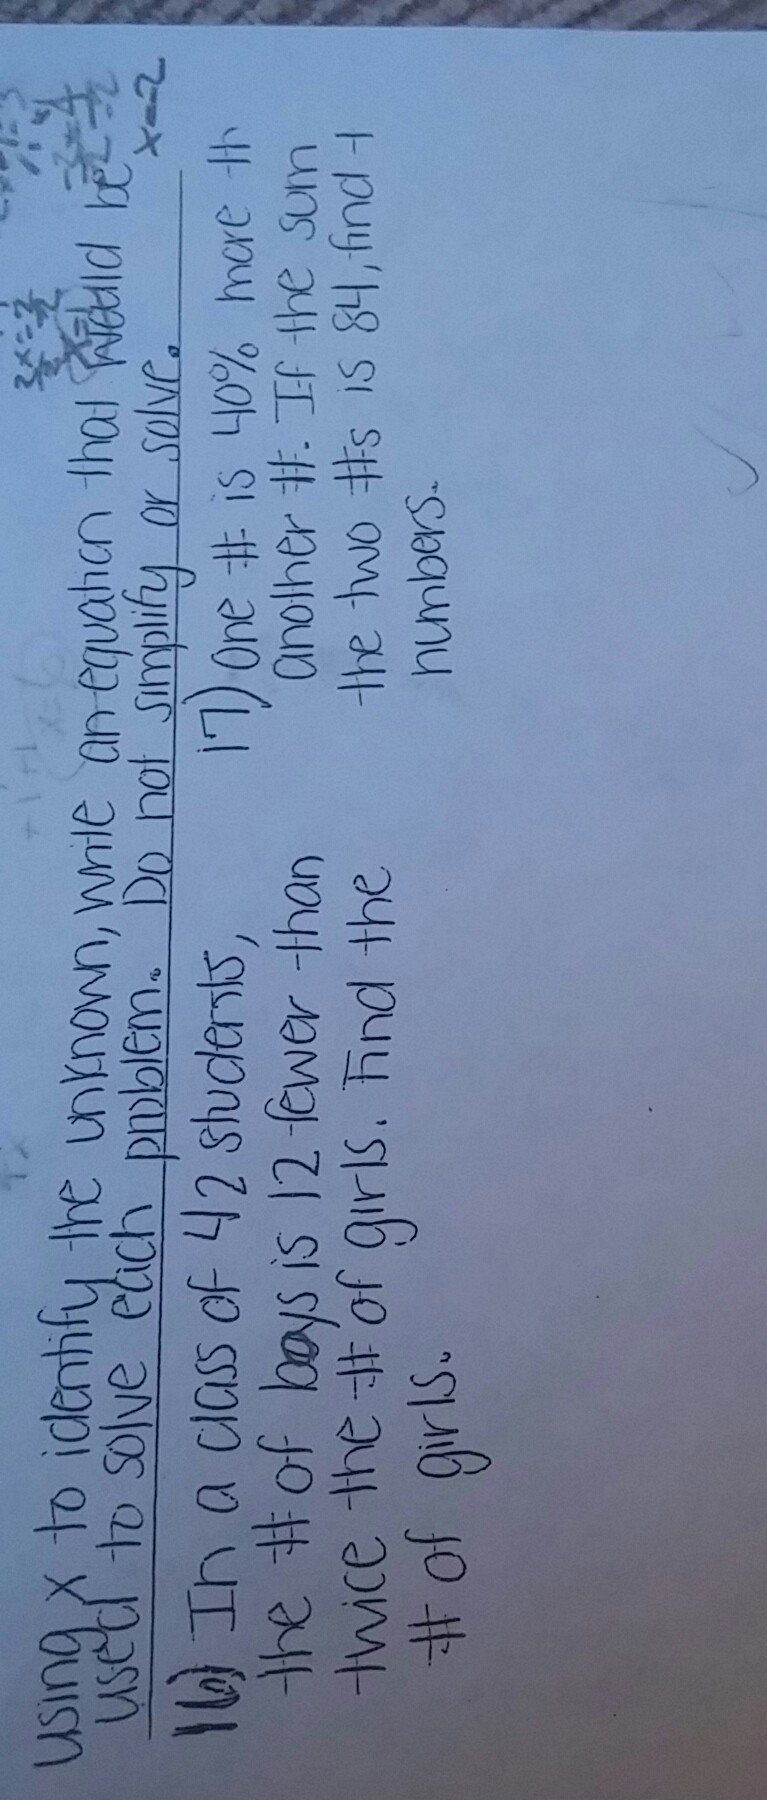 using x to identify the unknown, write an equation that would be
used to solve each problem. Do not simplify or solve.
x=-2
16) In a class of 42 students,
the # of boys is 12 fewer than
twice the # of girls. Find the
# of girls.
17) One # is 40% more th
another #. If the sum
the two #s is 84, find t
numbers.